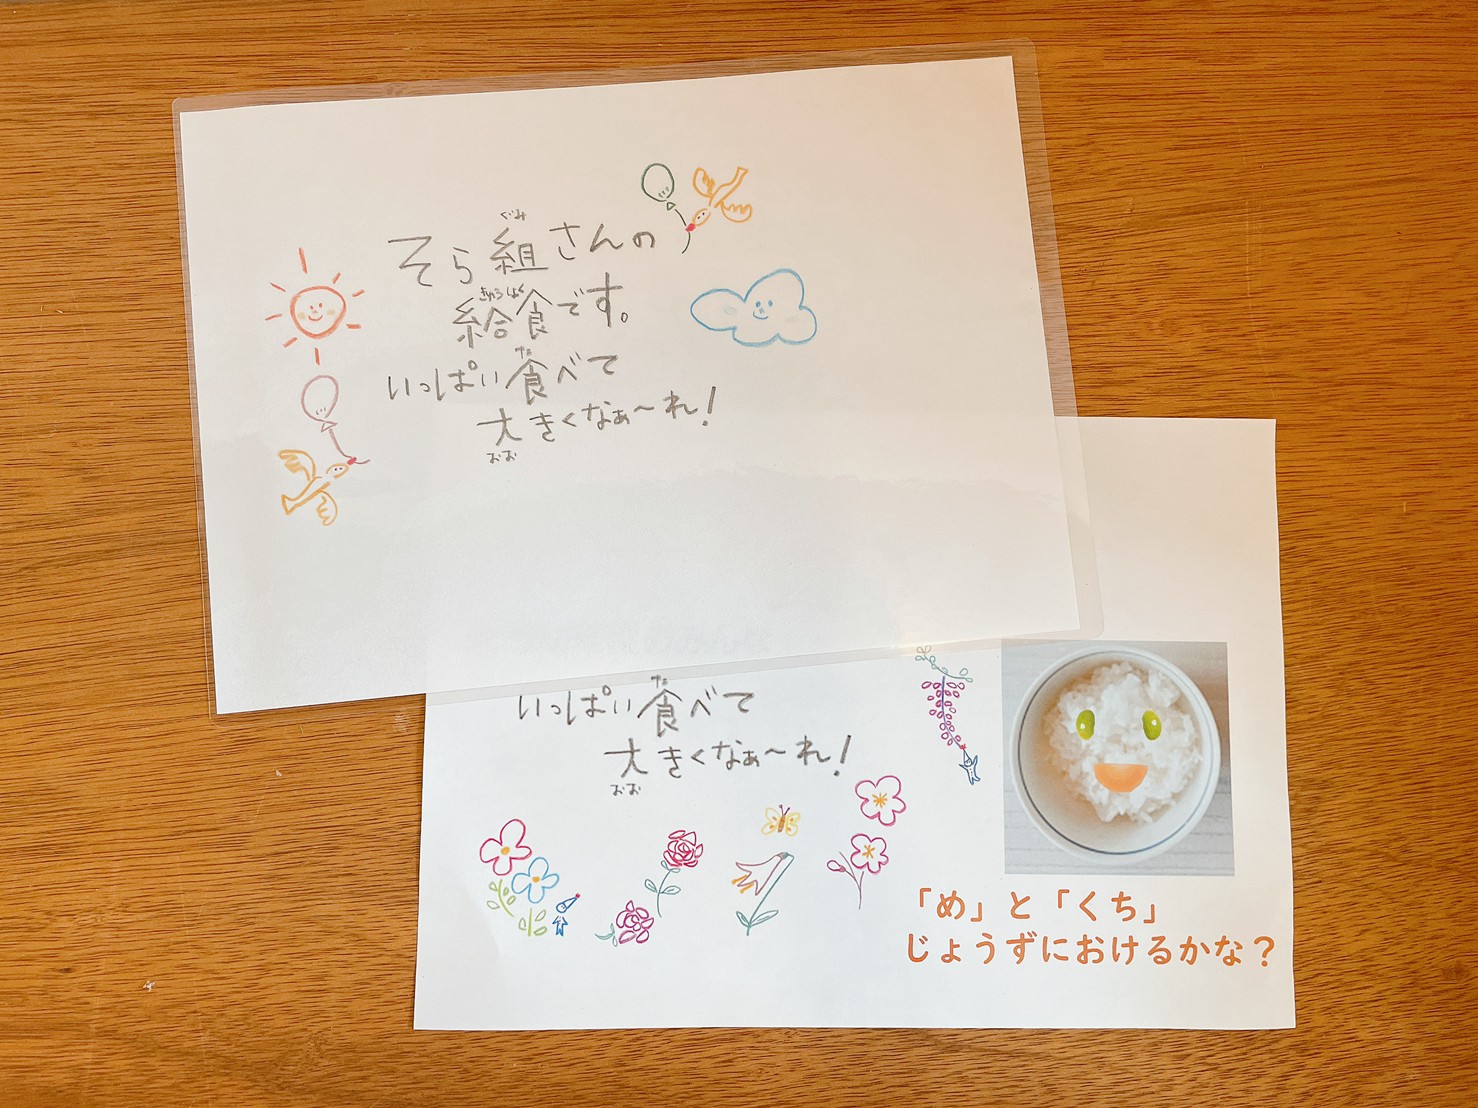 そら組さんの
ぐみ
給食です。
きゅうしょく
いっぱい食べて
た
大きくなぁ〜れ！
おお
いっぱい食べて
た
大きくなぁ〜れ！
おお
「め」と「くち」
じょうずにおけるかな？